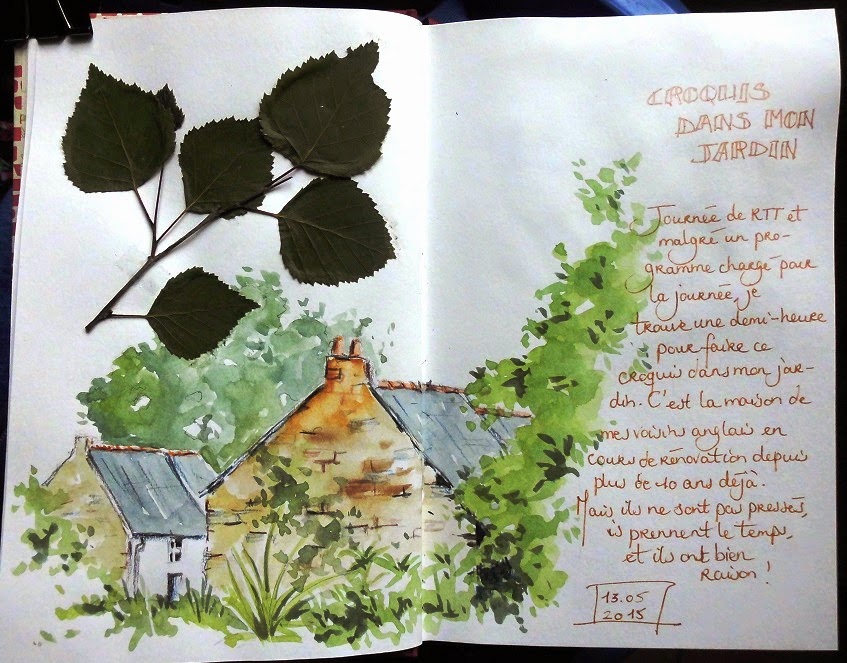 CROQUIS
DANS MON
JARDIN
Journée de RTT et
malgré un pro-
gramme chargé pour
la journée, je
trouve une demi-heure
pour faire ce
croquis dans mon jar-
din. C'est la maison de
mes voisins anglais en
cours de rénovation depuis
plus de 10 ans déjà.
Mais ils ne sont pas pressés,
is prennent le temps,
et ils ont bien
raison !
13.05
2015